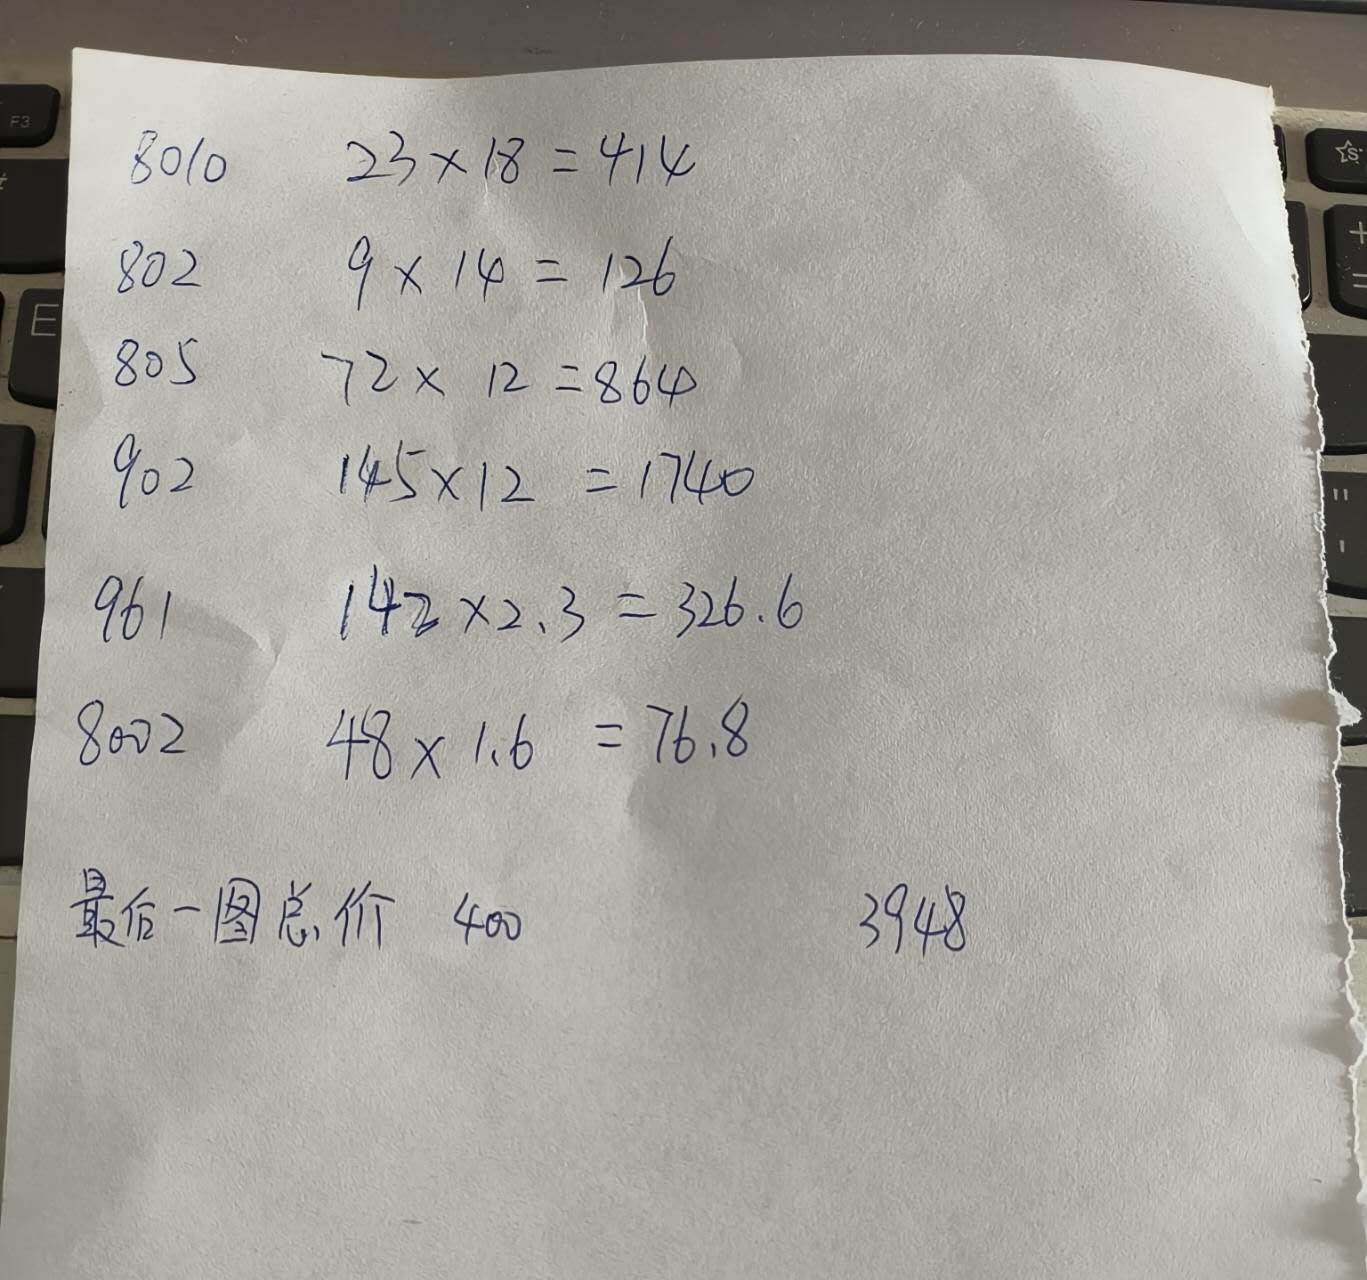 8010 23×18=414
802 9×14=126
805 72×12=864
902 145×12=1740
961 142×2.3=326.6
8002 48×1.6=76.8
最后一图总价 400 3948
F3
E